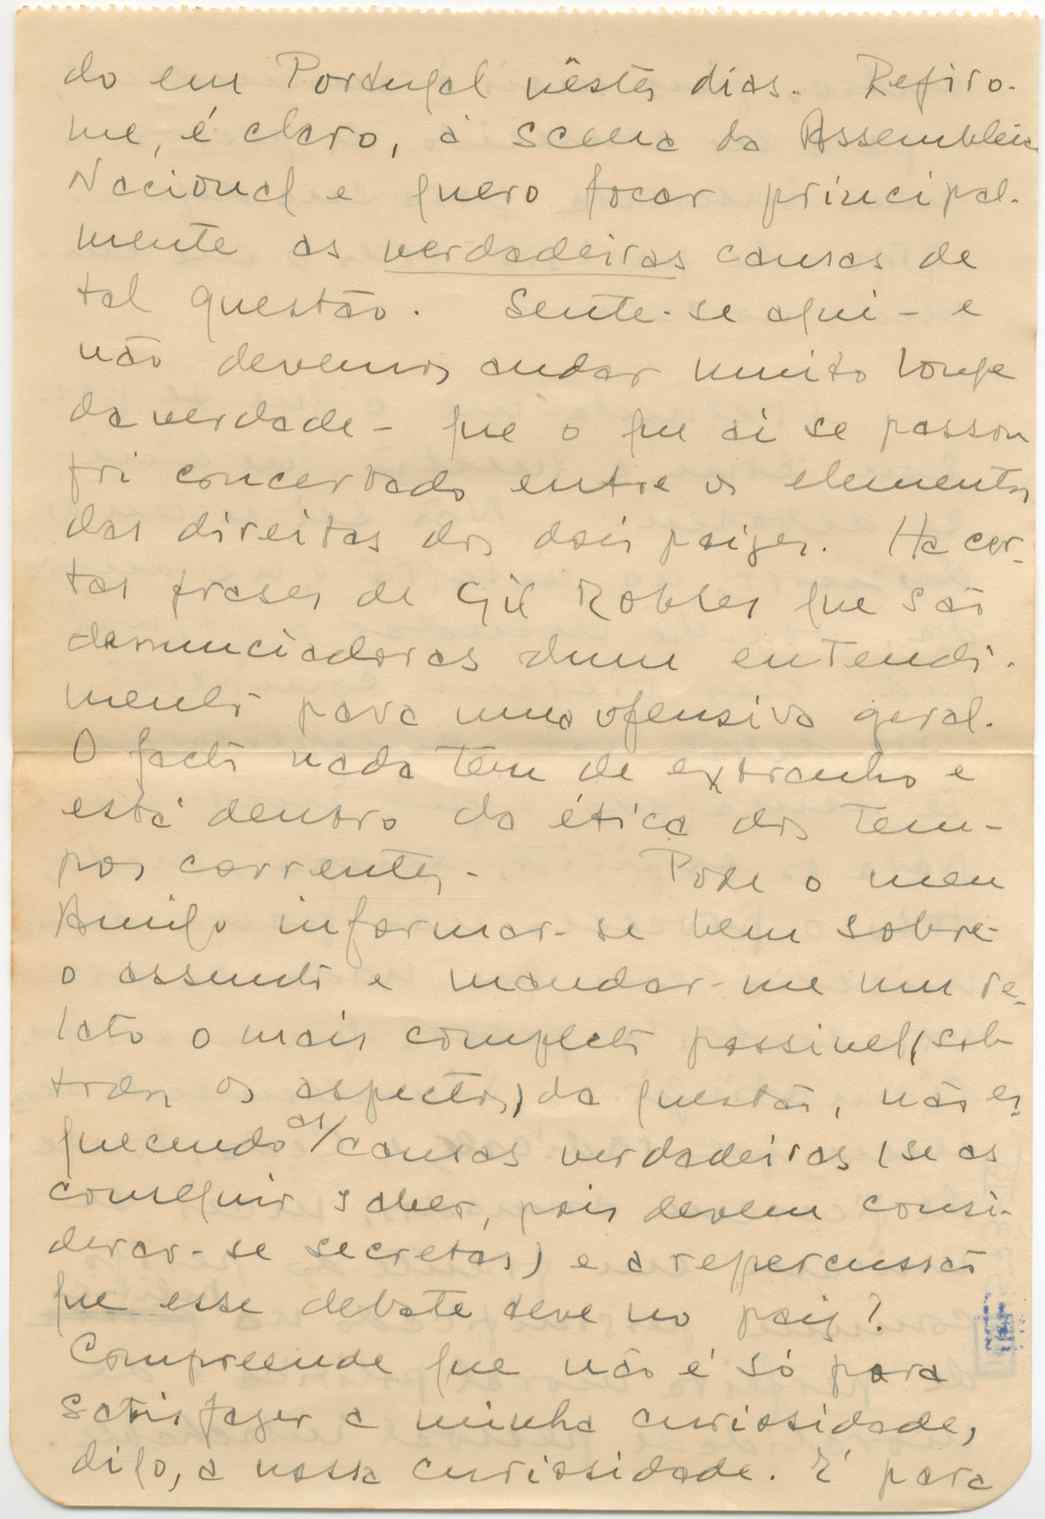 do em Portugal nêstes dias. Refiro-
me, é claro, á scena da Assembleia
Nacional e quero focar principal-
mente as verdadeiras causas de
tal questão. Sente-se aqui - e
não devemos andar muito longe
da verdade - que o que aí se passou
foi concertado entre os elementos
das direitas dos dois paizes. Ha cer-
tas frases de Gil Robles que são
denunciadoras dum entendi-
mento para uma ofensiva geral.
O facto nada tem de extranho e
está dentro da ética dos tem-
pos correntes. Pode o meu
Amigo informar-se bem sobre
o assunto e mandar-me um re-
lato o mais completo possivel, (sob
todos os aspectos) da questão, não es-
quecendo as/ causas verdadeiras (se as
conseguir saber, pois devem consi-
derar-se secretas) e a repercussão
que esse debate teve no paiz?
Compreende que não é só para
satisfazer a minha curiosidade,
digo, a nossa curiosidade. É para